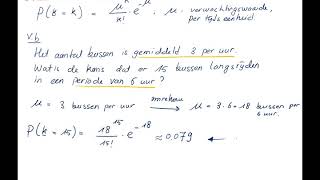 P(k = k) = μ^k / k! · e^-μ μ = verwachtingswaarde, per tijdseenheid.
vb
Het aantal bussen is gemiddeld 3 per uur.
Wat is de kans dat er 15 bussen langsrijden
in een periode van 6 uur?
μ = 3 bussen per uur → omrekenen μ = 3·6 = 18 bussen per 6 uur.
P(k = 15) = 18^15 / 15! · e^-18 ≈ 0.079 ←